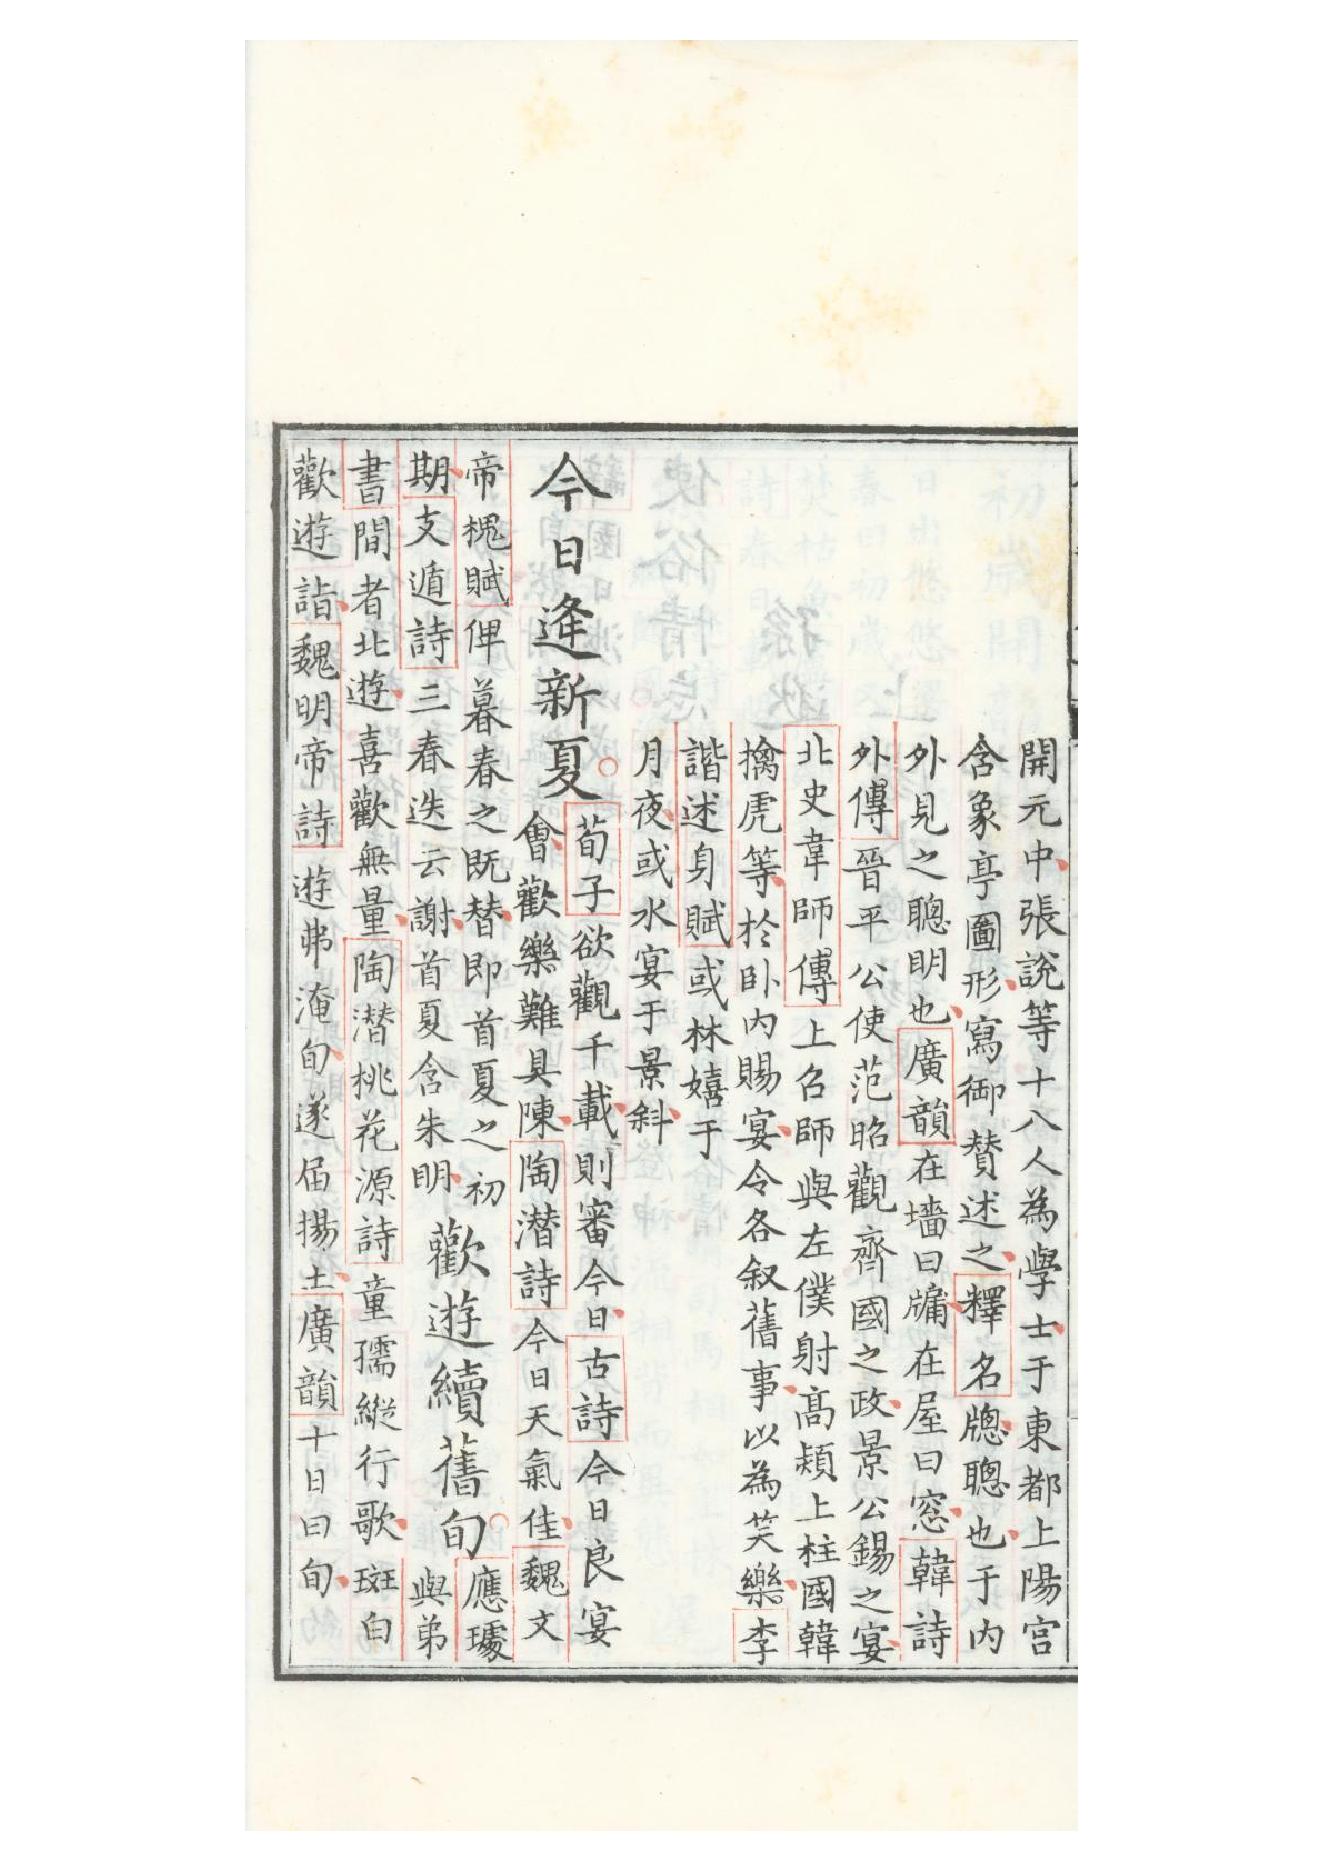 開元中張說等十八人為學士于東都上陽宮
含象亭圖形寫御賛述之釋名牕聰也于内
外見之聰明也廣韻在墻曰牖在屋曰窓韓詩
外傳晉平公使范昭觀齊國之政景公錫之宴
北史韋師傳上召師與左僕射高熲上柱國韓
擒虎等於卧内賜宴令各叙舊事以為笑樂李
諧述身賦或林嬉于
月夜或水宴于景斜
今日逢新夏
荀子欲觀千載則審今日古詩今日良宴
會歡樂難具陳陶潜詩今日天氣佳魏文
帝槐賦俾暮春之既替即首夏之初
期支遁詩三春迭云謝首夏含朱明
歡遊續舊旬
應璩
與弟
書間者北遊喜歡無量陶潜桃花源詩童孺縱行歌斑白
歡遊詣魏明帝詩遊弗淹旬遂届揚土廣韻十日曰旬